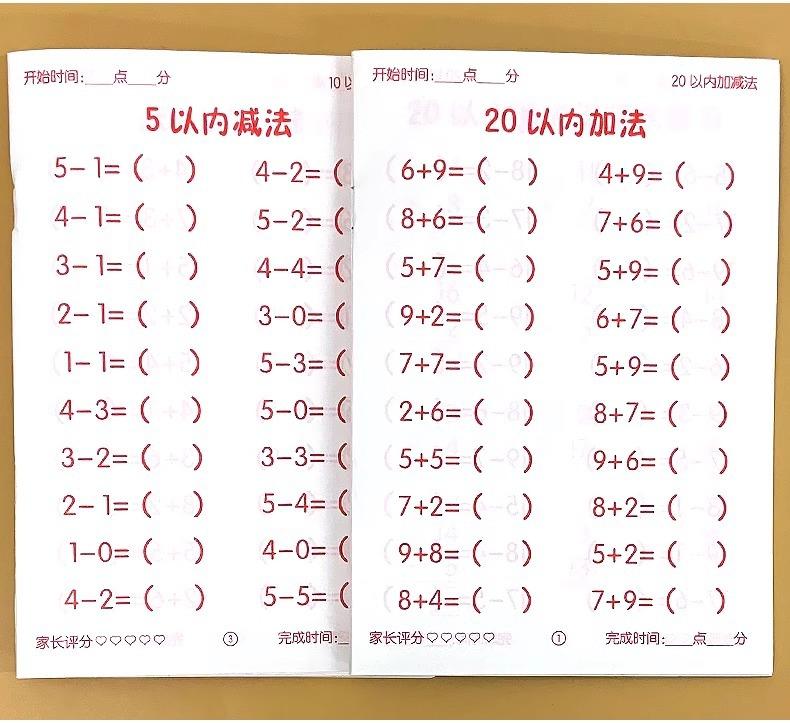 开始时间:___点___分
10 以
5 以内减法
5-1=( ) 4-2=(
4-1=( ) 5-2=(
3-1=( ) 4-4=(
2-1=( ) 3-0=(
1-1=( ) 5-3=(
4-3=( ) 5-0=(
3-2=( ) 3-3=(
2-1=( ) 5-4=(
1-0=( ) 4-0=(
4-2=( ) 5-5=(
家长评分♡♡♡♡♡ ③ 完成时间:_
开始时间:___点___分
20 以内加减法
20 以内加法
6+9=( ) 4+9=( )
8+6=( ) 7+6=( )
5+7=( ) 5+9=( )
9+2=( ) 6+7=( )
7+7=( ) 5+9=( )
2+6=( ) 8+7=( )
5+5=( ) 9+6=( )
7+2=( ) 8+2=( )
9+8=( ) 5+2=( )
8+4=( ) 7+9=( )
家长评分♡♡♡♡♡ ① 完成时间:___点___分